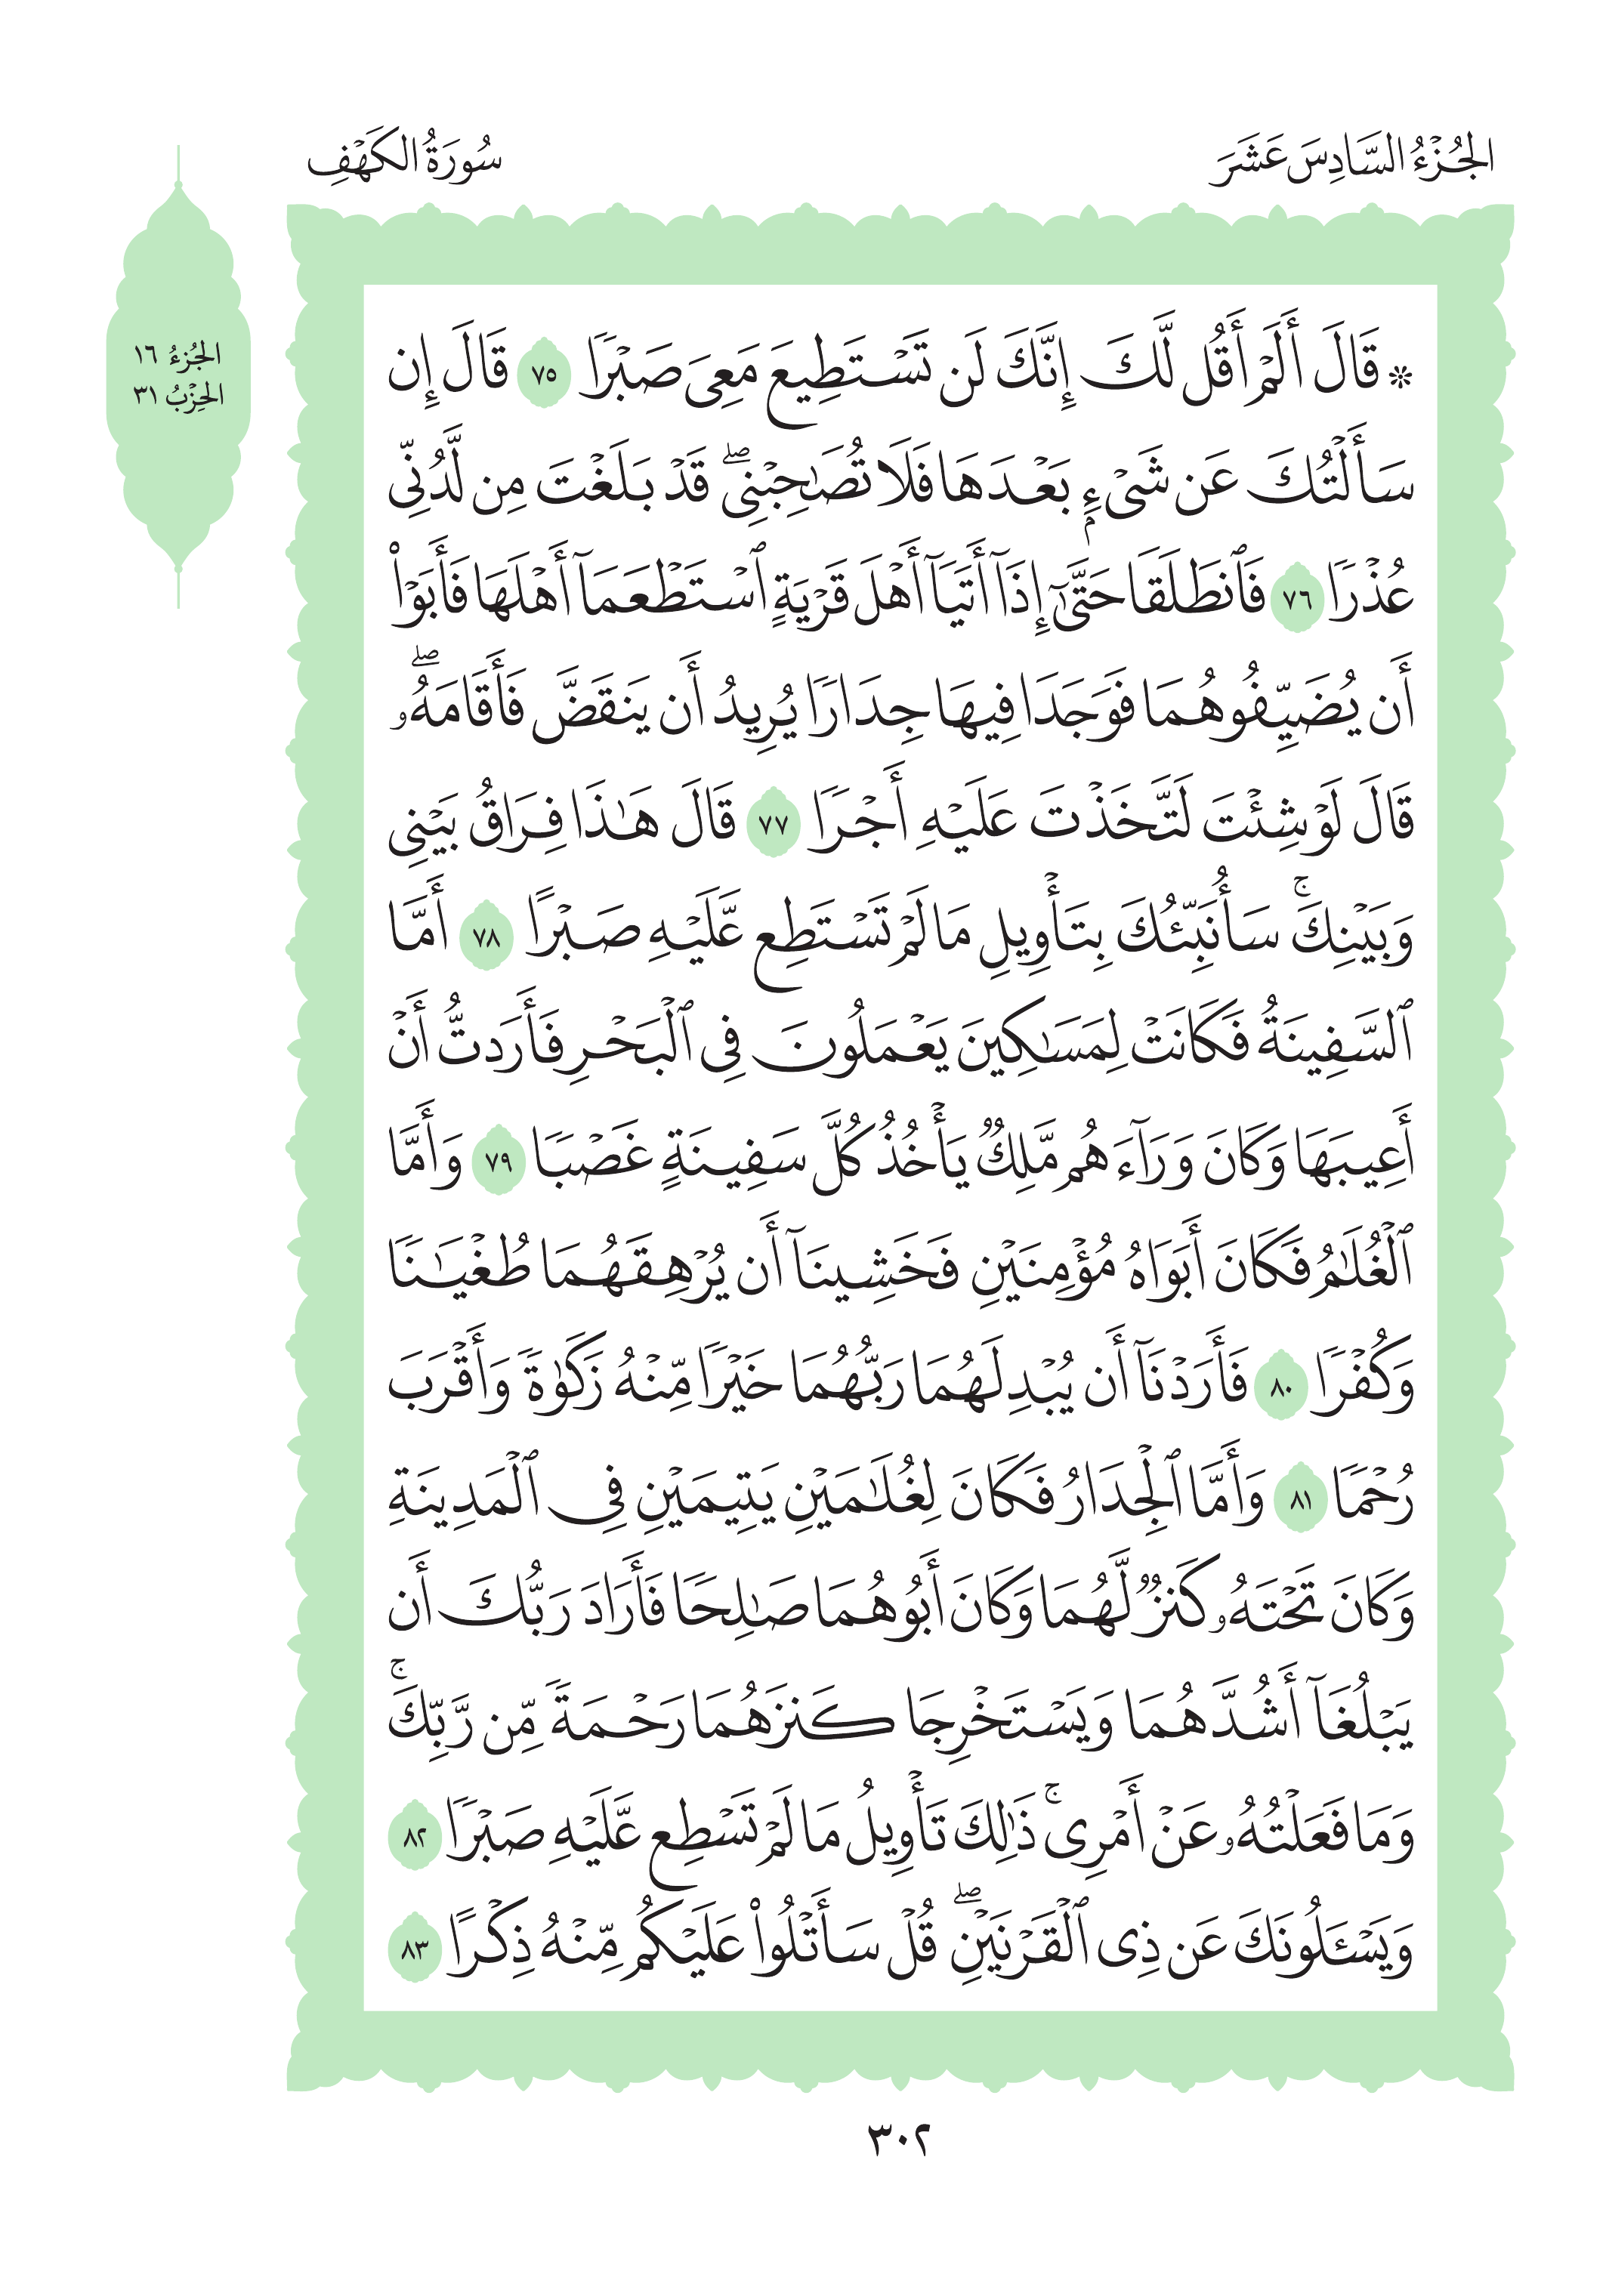 الجُزْءُ السَّادِسَ عَشَرَ
سُورَةُ الكَهْفِ
الجُزءُ ١٦
الحِزْبُ ٣١
۞ قَالَ أَلَمْ أَقُل لَّكَ إِنَّكَ لَن تَسْتَطِيعَ مَعِىَ صَبْرًا ٧٥ قَالَ إِن
سَأَلْتُكَ عَن شَىْءٍۭ بَعْدَهَا فَلَا تُصَٰحِبْنِى ۖ قَدْ بَلَغْتَ مِن لَّدُنِّى
عُذْرًا ٧٦ فَٱنطَلَقَا حَتَّىٰٓ إِذَآ أَتَيَآ أَهْلَ قَرْيَةٍ ٱسْتَطْعَمَآ أَهْلَهَا فَأَبَوْا۟
أَن يُضَيِّفُوهُمَا فَوَجَدَا فِيهَا جِدَارًا يُرِيدُ أَن يَنقَضَّ فَأَقَامَهُۥ ۖ
قَالَ لَوْ شِئْتَ لَتَّخَذْتَ عَلَيْهِ أَجْرًا ٧٧ قَالَ هَٰذَا فِرَاقُ بَيْنِى
وَبَيْنِكَ ۚ سَأُنَبِّئُكَ بِتَأْوِيلِ مَا لَمْ تَسْتَطِع عَّلَيْهِ صَبْرًا ٧٨ أَمَّا
ٱلسَّفِينَةُ فَكَانَتْ لِمَسَٰكِينَ يَعْمَلُونَ فِى ٱلْبَحْرِ فَأَرَدتُّ أَنْ
أَعِيبَهَا وَكَانَ وَرَآءَهُم مَّلِكٌ يَأْخُذُ كُلَّ سَفِينَةٍ غَصْبًا ٧٩ وَأَمَّا
ٱلْغُلَٰمُ فَكَانَ أَبَوَاهُ مُؤْمِنَيْنِ فَخَشِينَآ أَن يُرْهِقَهُمَا طُغْيَٰنًا
وَكُفْرًا ٨٠ فَأَرَدْنَآ أَن يُبْدِلَهُمَا رَبُّهُمَا خَيْرًا مِّنْهُ زَكَوٰةً وَأَقْرَبَ
رُحْمًا ٨١ وَأَمَّا ٱلْجِدَارُ فَكَانَ لِغُلَٰمَيْنِ يَتِيمَيْنِ فِى ٱلْمَدِينَةِ
وَكَانَ تَحْتَهُۥ كَنزٌ لَّهُمَا وَكَانَ أَبُوهُمَا صَٰلِحًا فَأَرَادَ رَبُّكَ أَن
يَبْلُغَآ أَشُدَّهُمَا وَيَسْتَخْرِجَا كَنزَهُمَا رَحْمَةً مِّن رَّبِّكَ ۚ
وَمَا فَعَلْتُهُۥ عَنْ أَمْرِى ۚ ذَٰلِكَ تَأْوِيلُ مَا لَمْ تَسْطِع عَّلَيْهِ صَبْرًا ٨٢
وَيَسْـَٔلُونَكَ عَن ذِى ٱلْقَرْنَيْنِ ۖ قُلْ سَأَتْلُوا۟ عَلَيْكُم مِّنْهُ ذِكْرًا ٨٣
٣٠٢